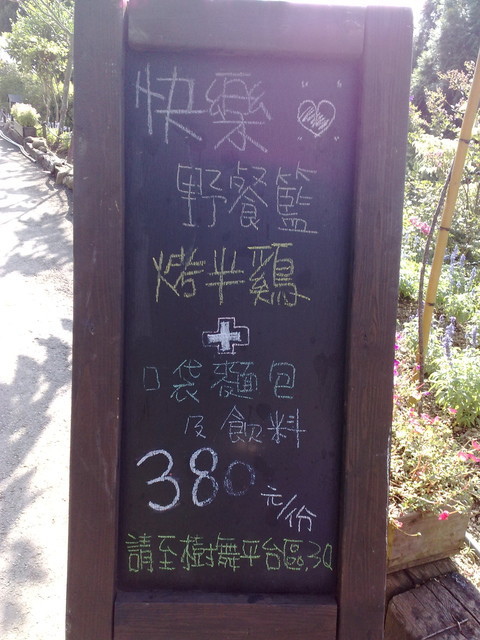 快樂
野餐籃
烤半雞
+
口袋麵包
及飲料
380元/份
請至樹舞平台區